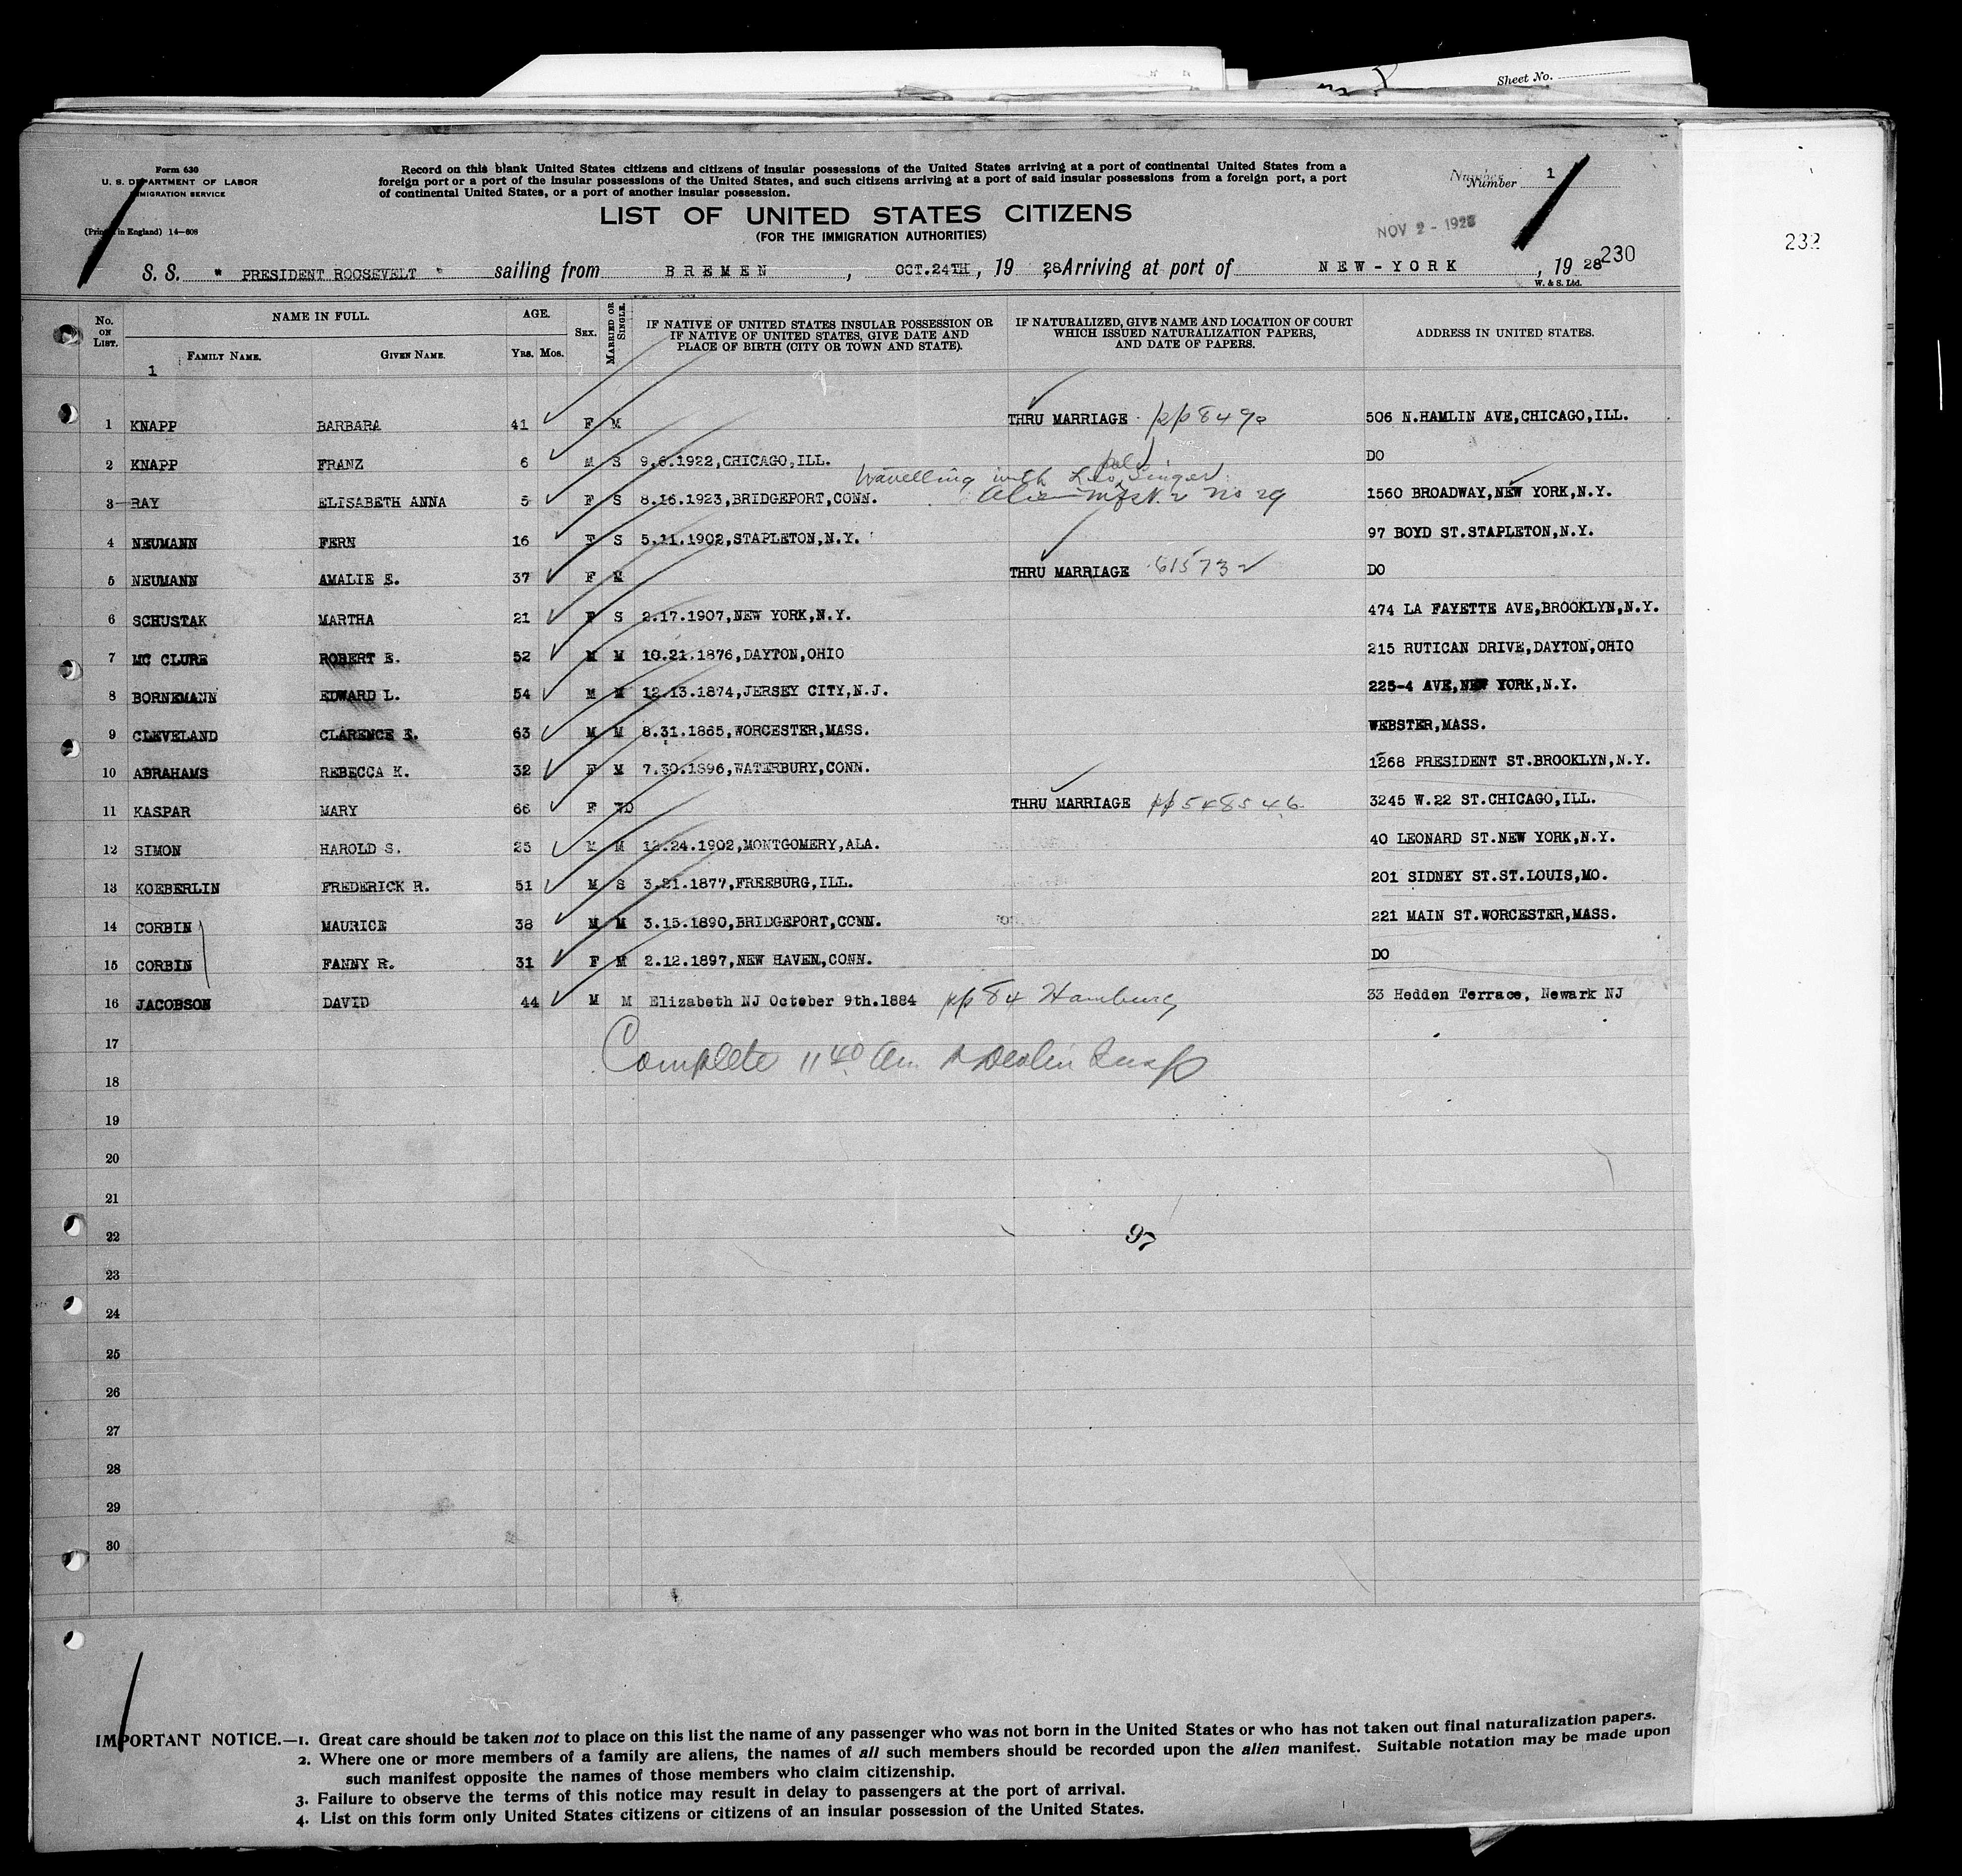 Sheet No.
Form 630
U. S. DEPARTMENT OF LABOR
IMMIGRATION SERVICE
(Printed in England) 14—606
Record on this blank United States citizens and citizens of insular possessions of the United States arriving at a port of continental United States from a
foreign port or a port of the insular possessions of the United States, and such citizens arriving at a port of said insular possessions from a foreign port, a port
of continental United States, or a port of another insular possession.
Number 1
LIST OF UNITED STATES CITIZENS
(FOR THE IMMIGRATION AUTHORITIES)
NOV 2 - 1928
230
232
S. S. " PRESIDENT ROOSEVELT " sailing from BREMEN, OCT.24TH, 19 28 Arriving at port of NEW-YORK, 19 28
W. & S. Ltd.
No. ON LIST. NAME IN FULL. AGE. SEX. MARRIED OR SINGLE. IF NATIVE OF UNITED STATES INSULAR POSSESSION OR IF NATIVE OF UNITED STATES, GIVE DATE AND PLACE OF BIRTH (CITY OR TOWN AND STATE). IF NATURALIZED, GIVE NAME AND LOCATION OF COURT WHICH ISSUED NATURALIZATION PAPERS, AND DATE OF PAPERS. ADDRESS IN UNITED STATES.
FAMILY NAME. GIVEN NAME. YRS. MOS.
1
1 KNAPP BARBARA 41 F M THRU MARRIAGE pp 8490 506 N.HAMLIN AVE,CHICAGO,ILL.
2 KNAPP FRANZ 6 M S 9.6.1922,CHICAGO,ILL. DO
travelling with Leo Singer
3 RAY ELISABETH ANNA 5 F S 8.16.1923,BRIDGEPORT,CONN. 1560 BROADWAY,NEW YORK,N.Y.
4 NEUMANN FERN 16 F S 5.11.1902,STAPLETON,N.Y. 97 BOYD ST.STAPLETON,N.Y.
5 NEUMANN AMALIE E. 37 F M THRU MARRIAGE 615732 DO
6 SCHUSTAK MARTHA 21 F S 2.17.1907,NEW YORK,N.Y. 474 LA FAYETTE AVE,BROOKLYN,N.Y.
7 MC CLURE ROBERT E. 52 M M 10.21.1876,DAYTON,OHIO 215 RUTICAN DRIVE,DAYTON,OHIO
8 BORNEMANN EDWARD L. 54 M M 12.13.1874,JERSEY CITY,N.J. 225-4 AVE,NEW YORK,N.Y.
9 CLEVELAND CLARENCE E. 63 M M 8.31.1865,WORCESTER,MASS. WEBSTER,MASS.
10 ABRAHAMS REBECCA K. 32 F M 7.30.1896,WATERBURY,CONN. 1268 PRESIDENT ST.BROOKLYN,N.Y.
11 KASPAR MARY 66 F WD THRU MARRIAGE pp 548546 3245 W.22 ST.CHICAGO,ILL.
12 SIMON HAROLD S. 25 M M 12.24.1902,MONTGOMERY,ALA. 40 LEONARD ST.NEW YORK,N.Y.
13 KOEBERLIN FREDERICK R. 51 M S 3.21.1877,FREEBURG,ILL. 201 SIDNEY ST.ST.LOUIS,MO.
14 CORBIN MAURICE 38 M M 3.15.1890,BRIDGEPORT,CONN. 221 MAIN ST.WORCESTER,MASS.
15 CORBIN FANNY R. 31 F M 2.12.1897,NEW HAVEN,CONN. DO
16 JACOBSON DAVID 44 M M Elizabeth NJ October 9th.1884 pp 84 Hamburg 33 Hedden Terrace, Newark NJ
17
Complete 11 40 am Devlin Insp
18
19
20
21
22
97
23
24
25
26
27
28
29
30
IMPORTANT NOTICE.—1. Great care should be taken not to place on this list the name of any passenger who was not born in the United States or who has not taken out final naturalization papers.
2. Where one or more members of a family are aliens, the names of all such members should be recorded upon the alien manifest. Suitable notation may be made upon
such manifest opposite the names of those members who claim citizenship.
3. Failure to observe the terms of this notice may result in delay to passengers at the port of arrival.
4. List on this form only United States citizens or citizens of an insular possession of the United States.